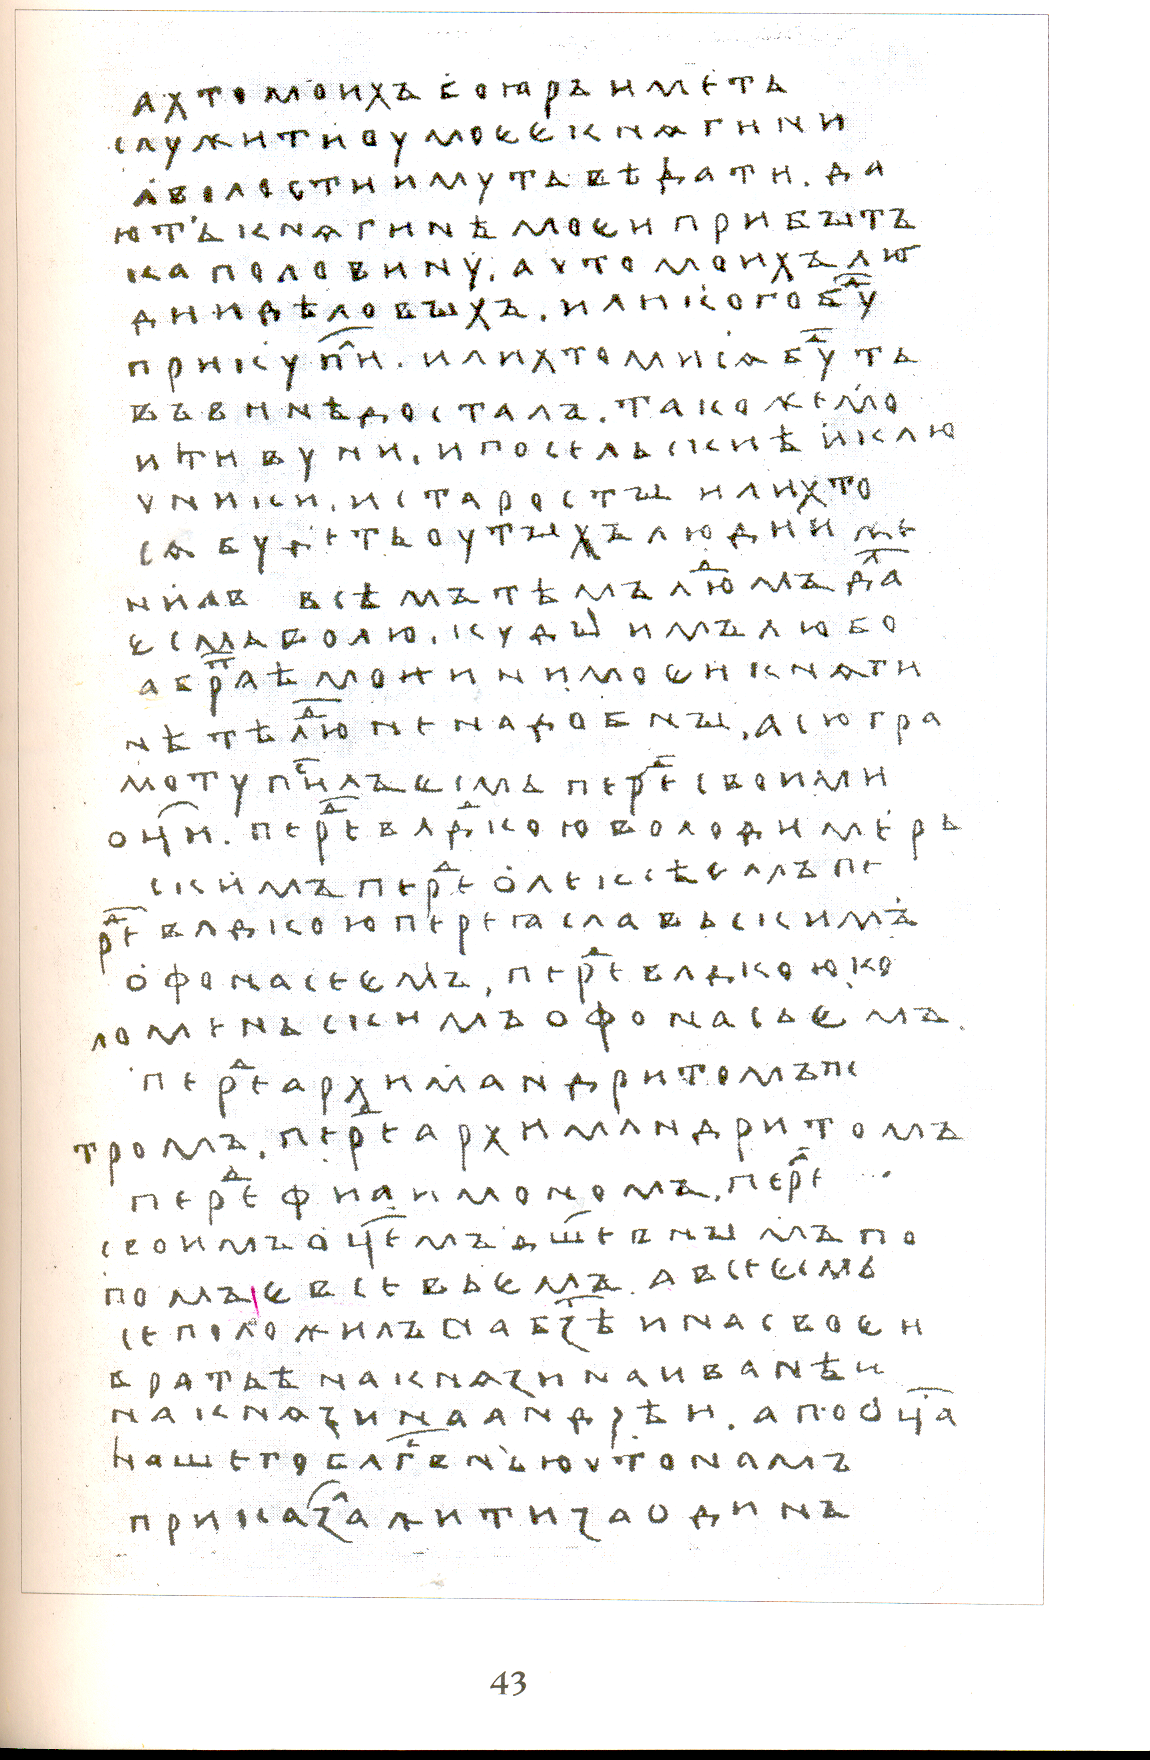 а хто моихъ боꙗръ имѣть
служити оу моеє кнѧгини
а волости имуть вѣдати. да
ють кнѧгинѣ моєи прибытъ
ка половину. а что моихъ лю
дии дѣловыхъ. или кого буⷣ
прикупиⷧ. или хто ми сѧ буⷣть
въ винѣ досталъ. тако же мо
и тивуни. и посельскиѣ и клю
чники. и старосты или хто
сѧ будеть оу тыхъ людии же
нилъ всѣмъ тѣмъ люⷣмъ даⷧ
єсмь волю. куды имъ любо
а браⷮѣ моѥи ни моєи кнѧги
нѣ тѣ люⷣ не надобны. а сю гра
моту пиⷭлъ єсмь переⷣ своими
оц҃и. переⷣ влдкою володимерь
скимъ переⷣ олексѣємъ пе
реⷣ влдкою переꙗславьскимъ
офонасеємъ, переⷣ влдкою ко
ломеньскимъ офонасьємъ.
переⷣ архимандритомъ пе
тромъ. переⷣ архимандритомъ
переⷣ филимономъ. переⷣ
своимъ оц҃емъ дш҃евнымъ по
помъ євсевьємъ. а все єсмь
се положилъ на бз҃ѣ и на своєи
братьѣ на кнѧзи на иванѣ и
на кнѧзи на андрѣи. а по оц҃а
нашего блг҃вⷭнью что намъ
приказаⷧ жити за одинъ
43